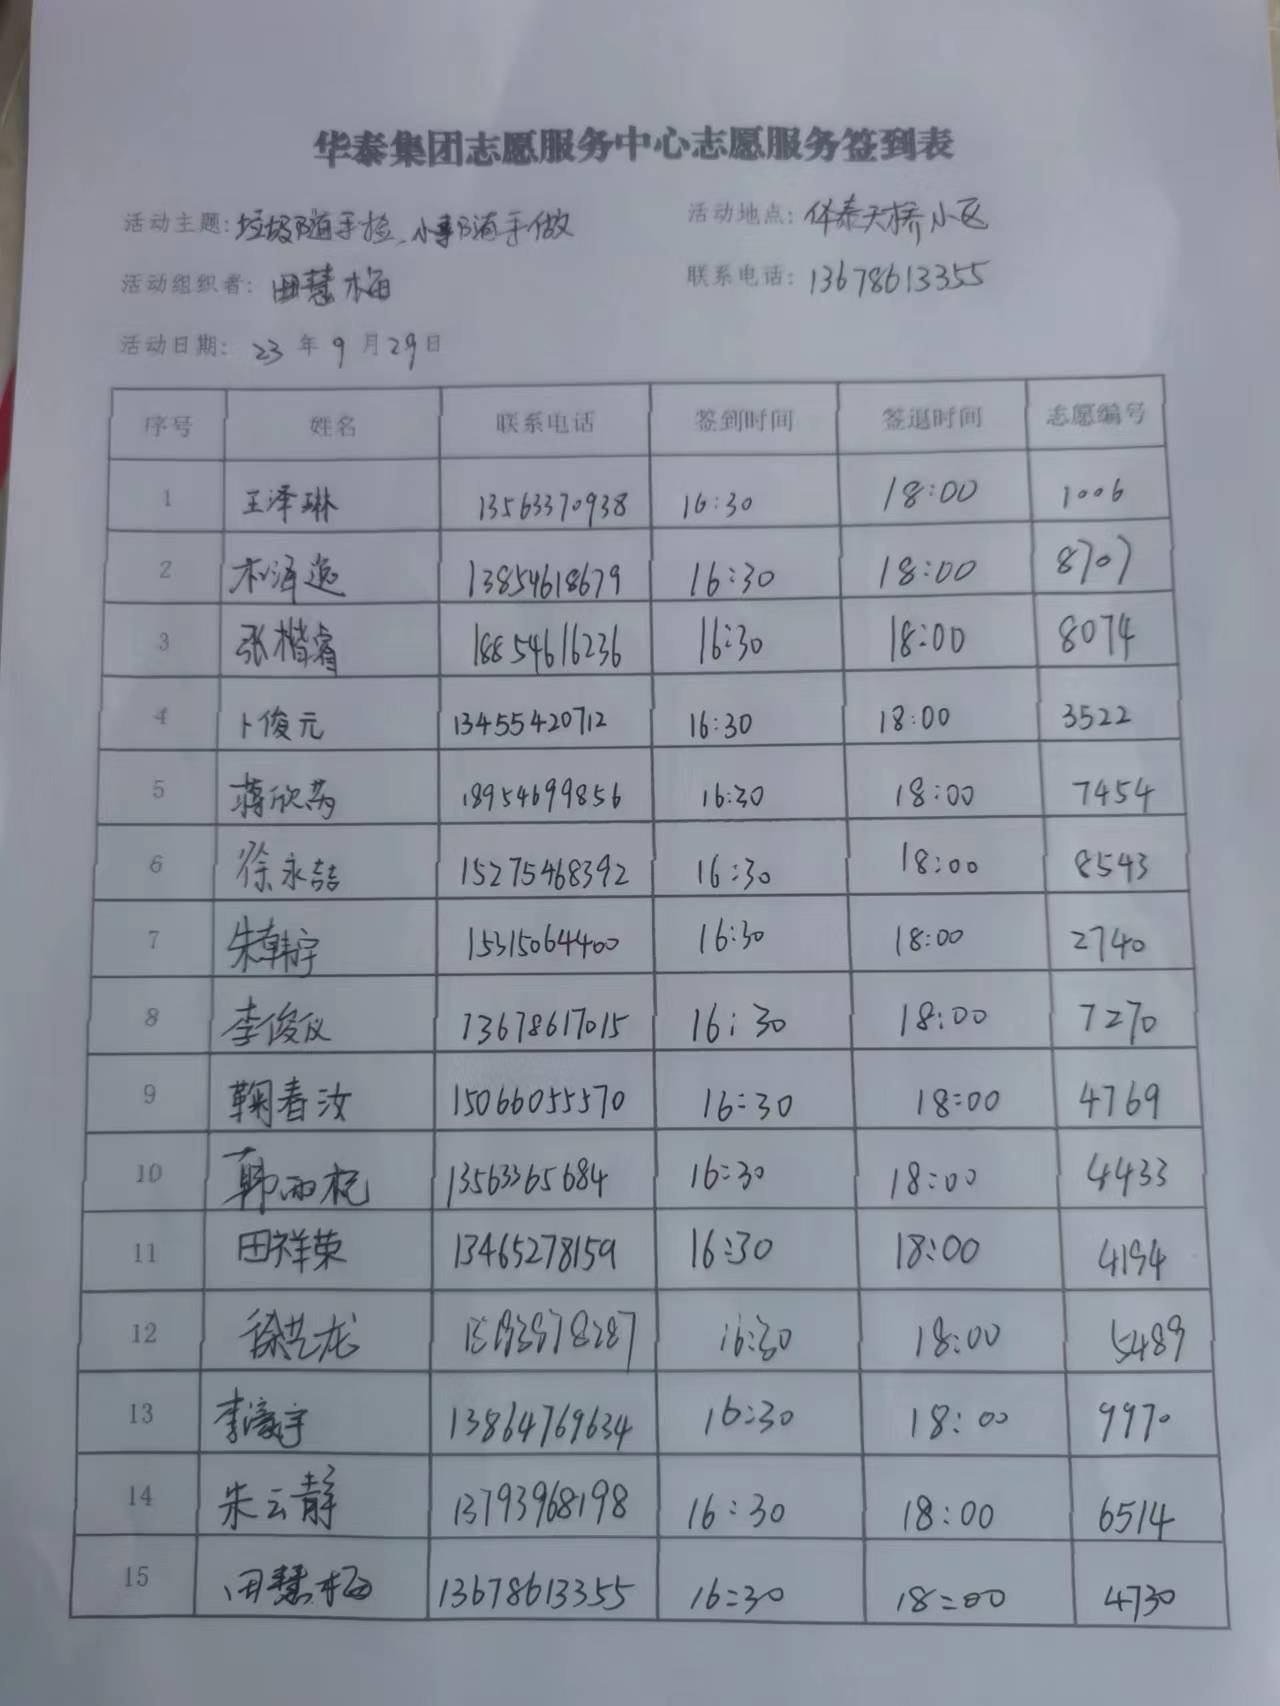 华泰集团志愿服务中心志愿服务签到表
活动主题: 垃圾随手捡、小事随手做 活动地点: 华泰天桥小区
活动组织者: 田慧梅 联系电话: 13678613355
活动日期: 23 年 9 月 29 日
序号 姓名 联系电话 签到时间 签退时间 志愿编号
1 王泽琳 13563370938 16:30 18:00 1006
2 13854618679 16:30 18:00 8707
3 张楷睿 18854616236 16:30 18:00 8074
4 卜俊元 13455420712 16:30 18:00 3522
5 蒋欣芮 18954699856 16:30 18:00 7454
6 徐永喆 15275468392 16:30 18:00 8543
7 朱韩宇 15315064400 16:30 18:00 2740
8 李俊仪 13678617015 16:30 18:00 7270
9 鞠春汝 15066055570 16:30 18:00 4769
10 韩雨杭 13563365684 16:30 18:00 4433
11 田祥荣 13465278159 16:30 18:00 4194
12 徐艺龙 16:30 18:00 5489
13 李濠宇 13864769634 16:30 18:00 9970
14 朱云静 13793968198 16:30 18:00 6514
15 田慧梅 13678613355 16:30 18:00 4730